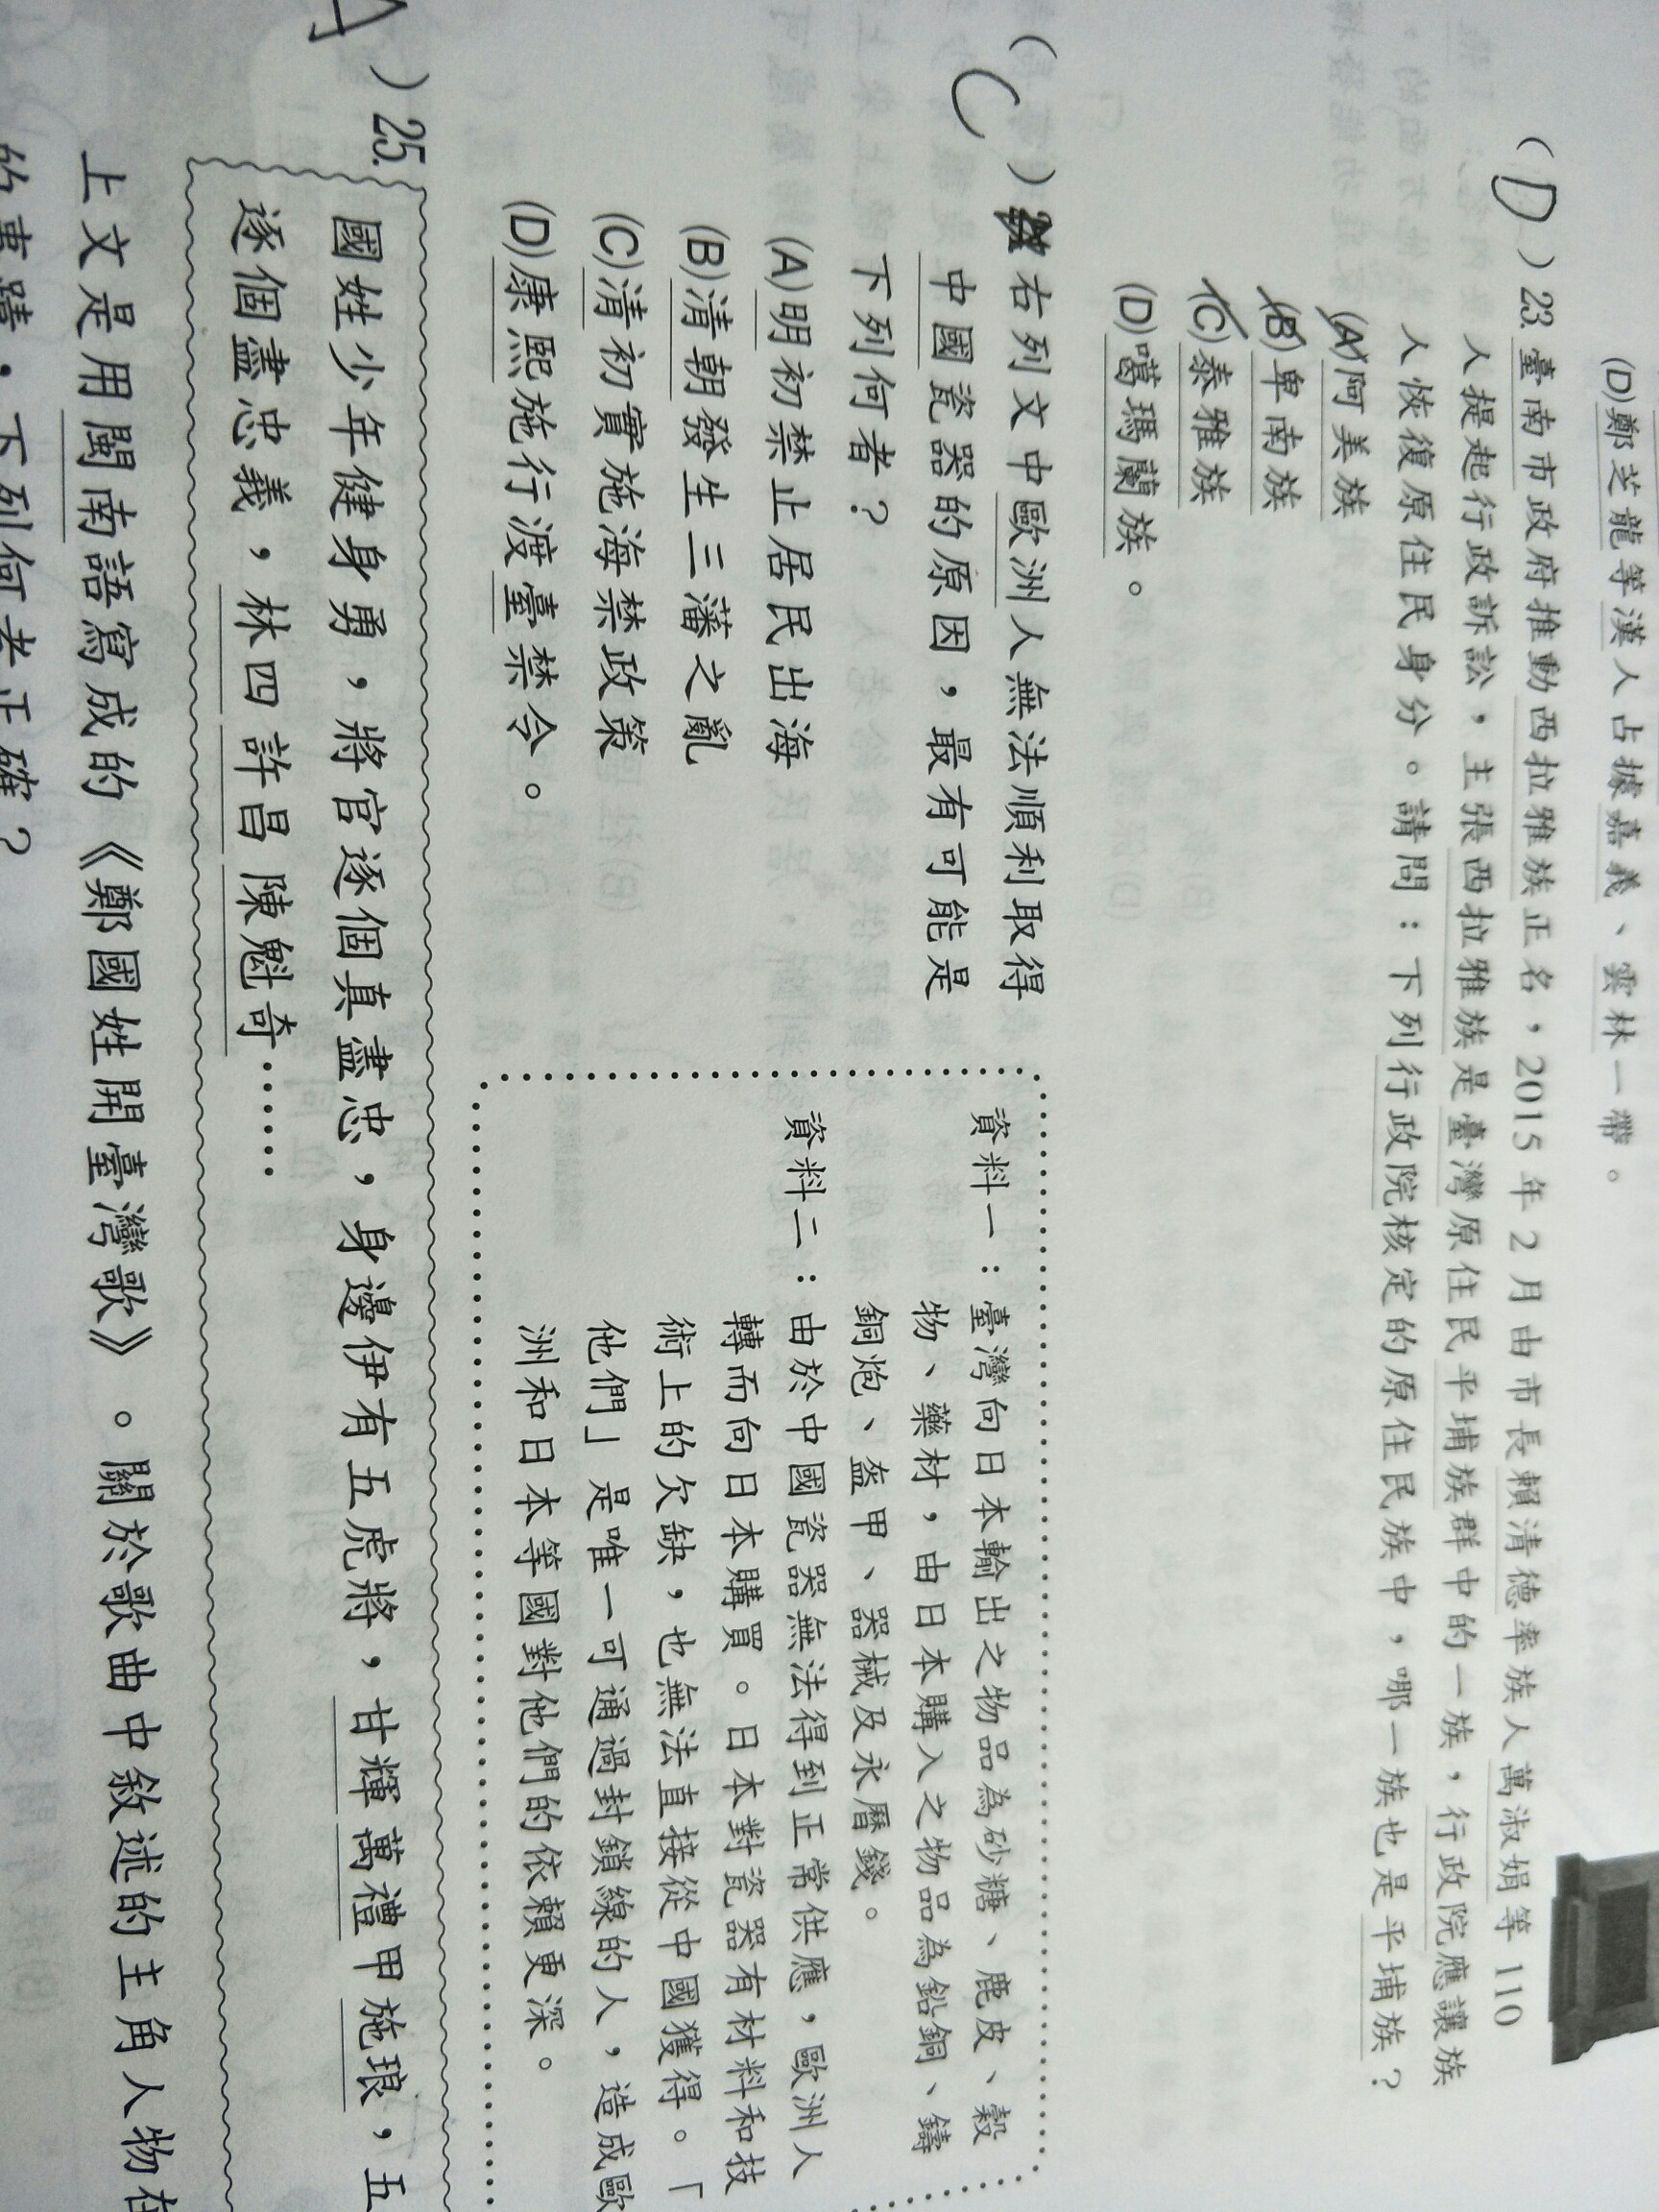 (D)鄭芝龍等漢人占據嘉義、雲林一帶。
(D)23.臺南市政府推動西拉雅族正名，2015年2月由市長賴清德率族人萬淑娟等110
人提起行政訴訟，主張西拉雅族是臺灣原住民平埔族群中的一族，行政院應讓族
人恢復原住民身分。請問：下列行政院核定的原住民族中，哪一族也是平埔族？
(A)阿美族
(B)卑南族
(C)泰雅族
(D)噶瑪蘭族。
(C)24.右列文中歐洲人無法順利取得
中國瓷器的原因，最有可能是
下列何者？
(A)明初禁止居民出海
(B)清朝發生三藩之亂
(C)清初實施海禁政策
(D)康熙施行渡臺禁令。
資料一：臺灣向日本輸出之物品為砂糖、鹿皮、穀
物、藥材，由日本購入之物品為鉛銅、鑄
銅炮、盔甲、器械及永曆錢。
資料二：由於中國瓷器無法得到正常供應，歐洲人
轉而向日本購買。日本對瓷器有材料和技
術上的欠缺，也無法直接從中國獲得。「
他們」是唯一可通過封鎖線的人，造成歐
洲和日本等國對他們的依賴更深。
A)25.國姓少年健身勇，將官逐個真盡忠，身邊伊有五虎將，甘輝萬禮甲施琅，五
逐個盡忠義，林四許昌陳魁奇……
上文是用閩南語寫成的《鄭國姓開臺灣歌》。關於歌曲中敘述的主角人物在
的事蹟，下列何者正確？